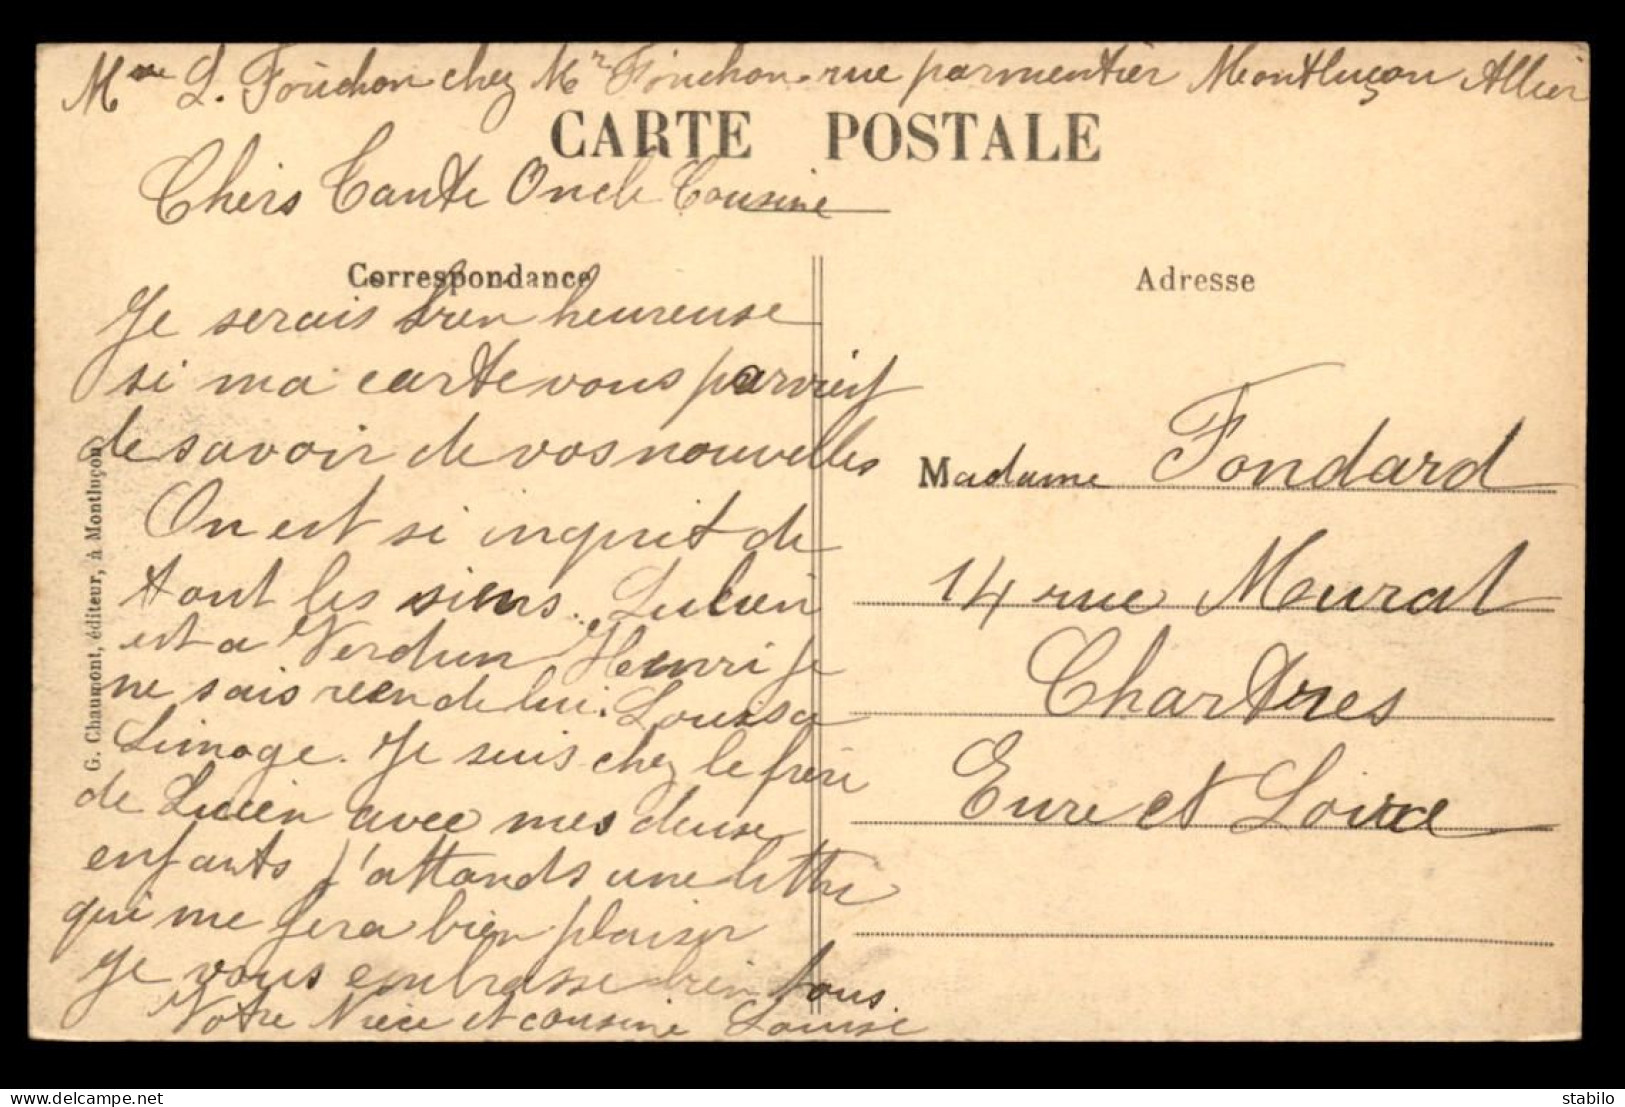 Mme L. Fouchon chez Mr Fouchon rue parmentier Montluçon Allier
CARTE POSTALE
Chers Tante Oncle Cousine
Correspondance
Je serais bien heureuse
si ma carte vous parvient
de savoir de vos nouvelles
On est si inquiet de
tout les siens. Lucien
est a Verdun Henri je
ne sais rien de lui. Louis a
Limoge. Je suis chez le frère
de Lucien avec mes deuse
enfants j'attands une lettre
qui me fera bien plaisir
Je vous embrasse bien tous.
Votre Nièce et cousine Louise
Adresse
Madame Fondard
14 rue Murat
Chartres
Eure et Loire
G. Chaumont, éditeur, à Montluçon
delcampe.net
stabilo